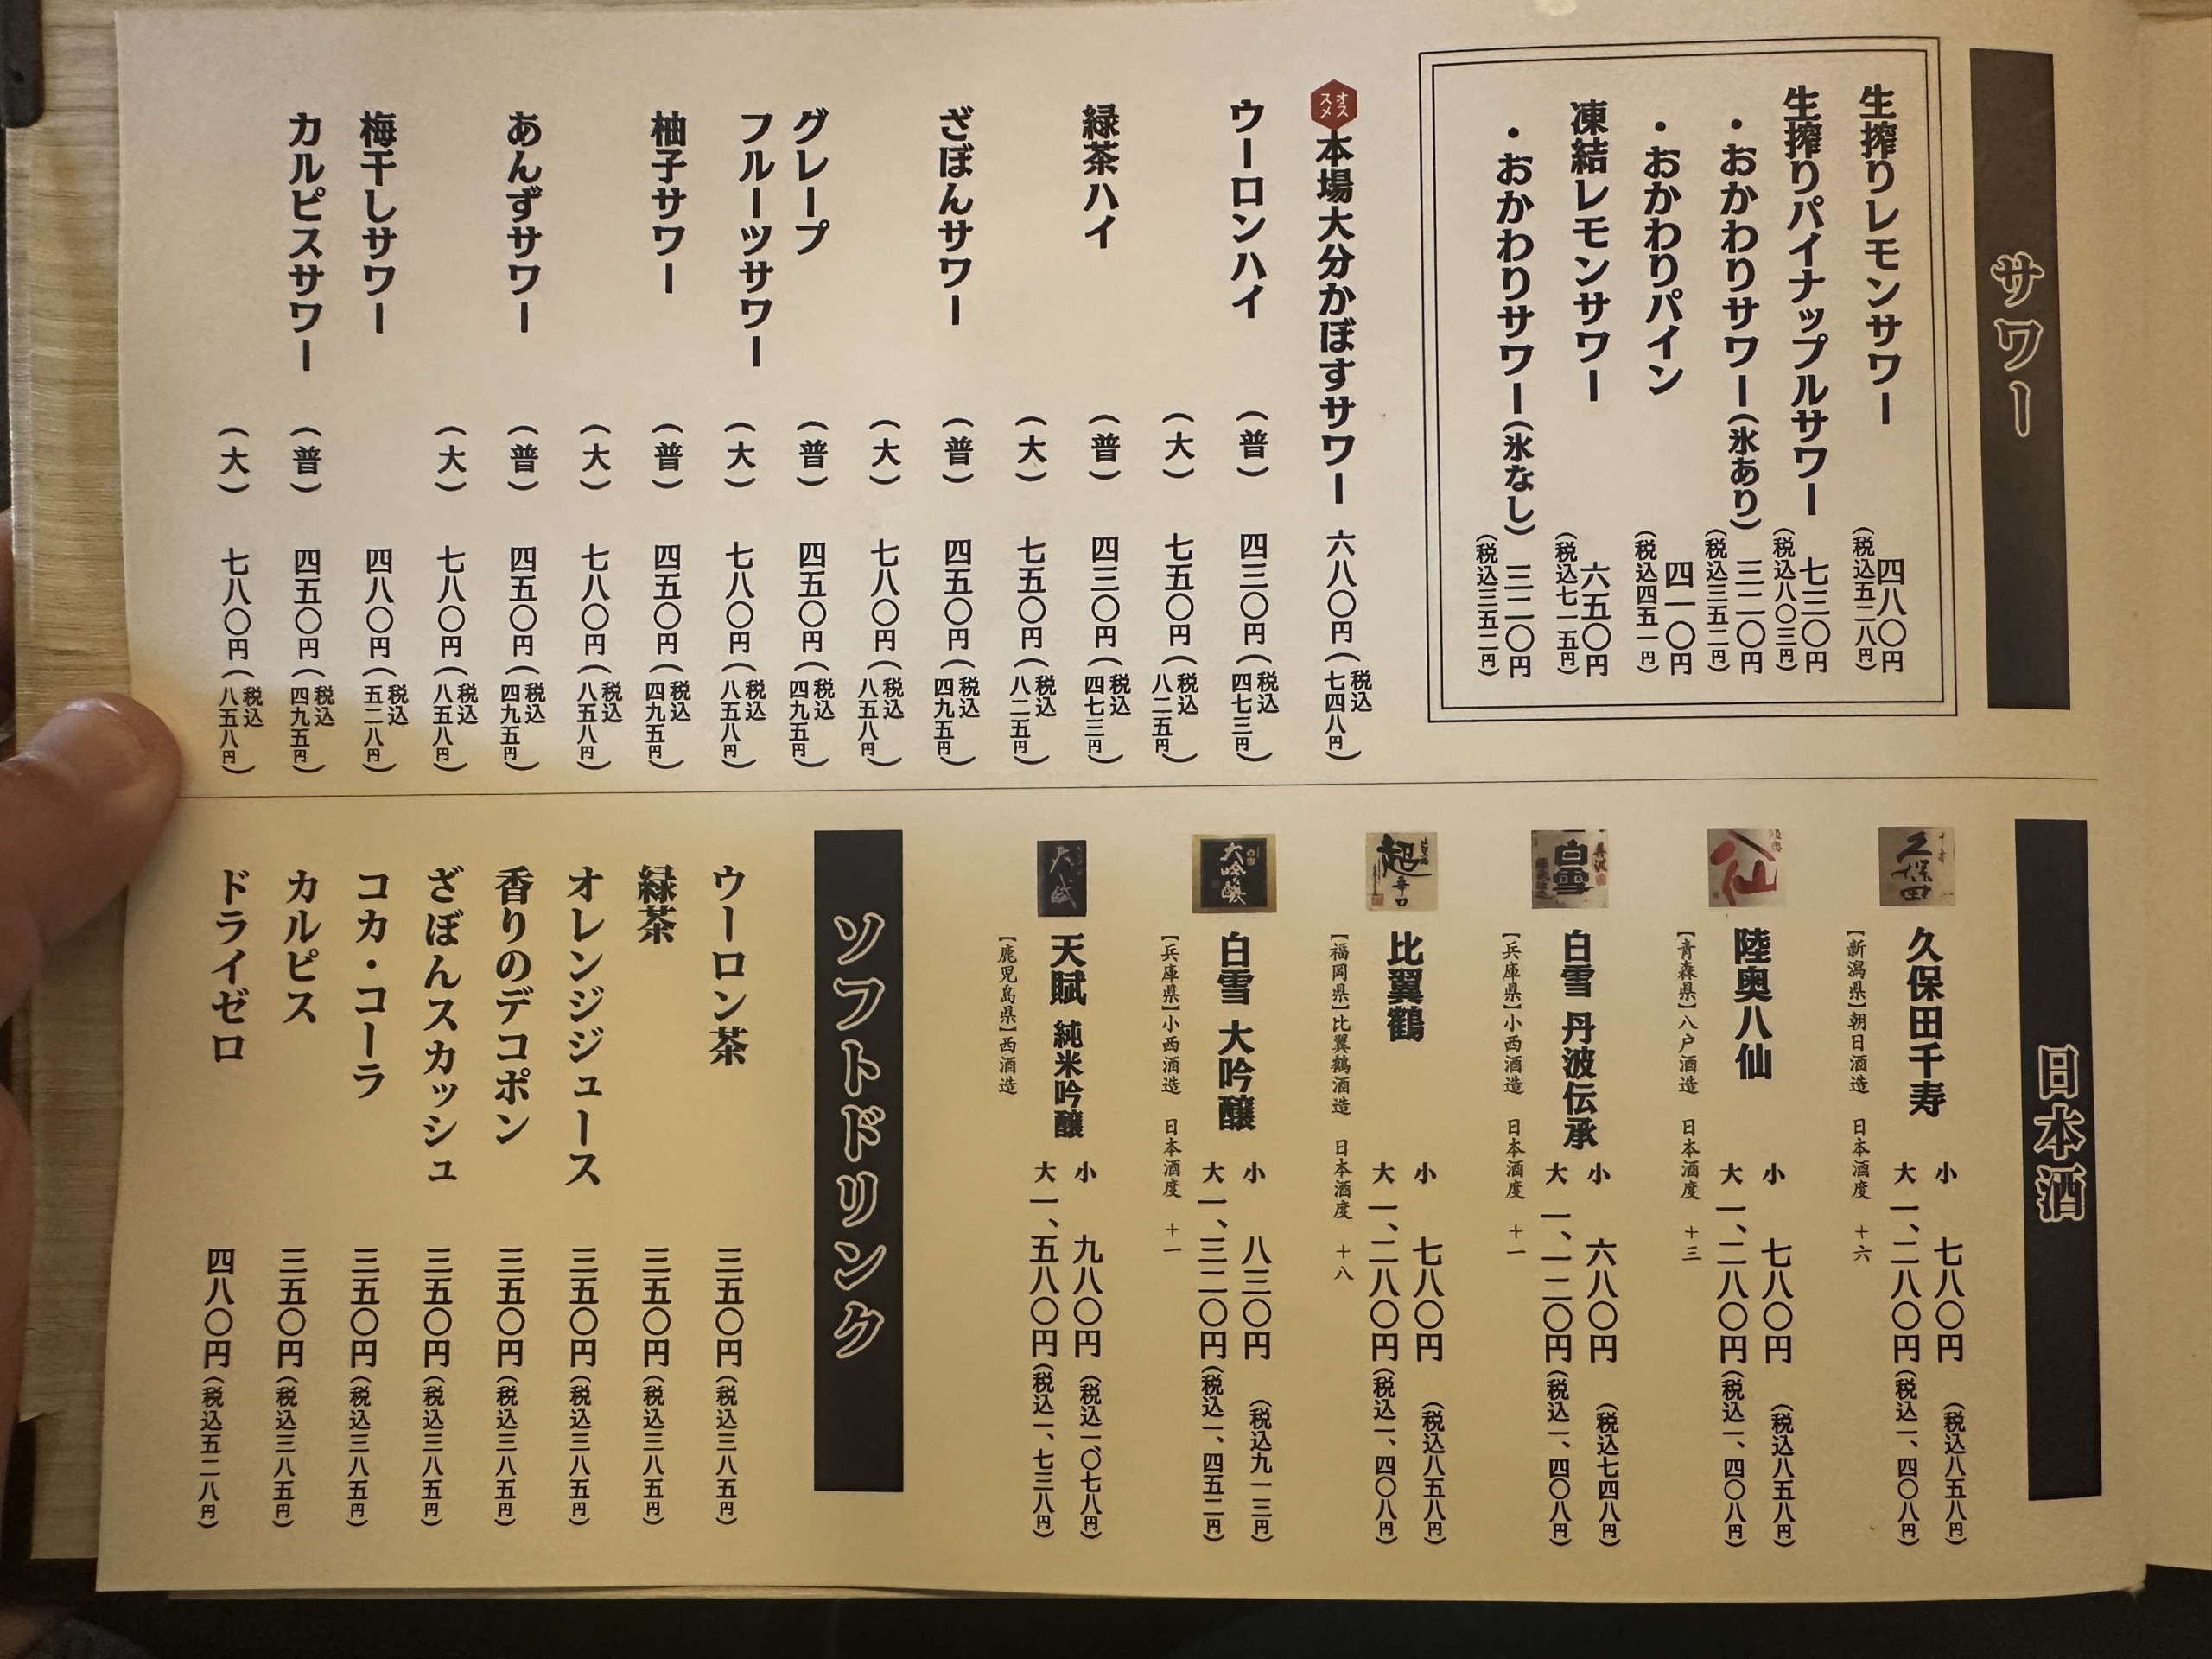 サワー
生搾りレモンサワー 四八〇円(税込五二八円)
生搾りパイナップルサワー 七三〇円(税込八〇三円)
・おかわりサワー(氷あり) 三二〇円(税込三五二円)
・おかわりパイン 四一〇円(税込四五一円)
凍結レモンサワー 六五〇円(税込七一五円)
・おかわりサワー(氷なし) 三二〇円(税込三五二円)
オススメ 本場大分かぼすサワー 六八〇円(税込七四八円)
ウーロンハイ (普) 四三〇円(税込四七三円)
(大) 七五〇円(税込八二五円)
緑茶ハイ (普) 四三〇円(税込四七三円)
(大) 七五〇円(税込八二五円)
ざぼんサワー (普) 四五〇円(税込四九五円)
(大) 七八〇円(税込八五八円)
グレープ
フルーツサワー (普) 四五〇円(税込四九五円)
(大) 七八〇円(税込八五八円)
柚子サワー (普) 四五〇円(税込四九五円)
(大) 七八〇円(税込八五八円)
あんずサワー (普) 四五〇円(税込四九五円)
(大) 七八〇円(税込八五八円)
梅干しサワー 四八〇円(税込五二八円)
カルピスサワー (普) 四五〇円(税込四九五円)
(大) 七八〇円(税込八五八円)
日本酒
久保田
久保田千寿 小 七八〇円(税込八五八円)
大 一、二八〇円(税込一、四〇八円)
【新潟県】朝日酒造 日本酒度 十六
八仙
陸奥八仙 小 七八〇円(税込八五八円)
大 一、二八〇円(税込一、四〇八円)
【青森県】八戸酒造 日本酒度 十三
白雪
白雪 丹波伝承 小 六八〇円(税込七四八円)
大 一、一二〇円(税込一、四〇八円)
【兵庫県】小西酒造 日本酒度 十一
超辛口
比翼鶴 小 七八〇円(税込八五八円)
大 一、二八〇円(税込一、四〇八円)
【福岡県】比翼鶴酒造 日本酒度 十八
大吟醸
白雪 大吟醸 小 八三〇円(税込九一三円)
大 一、三二〇円(税込一、四五二円)
【兵庫県】小西酒造 日本酒度 十一
天賦
天賦 純米吟醸 小 九八〇円(税込一、〇七八円)
大 一、五八〇円(税込一、七三八円)
【鹿児島県】西酒造
ソフトドリンク
ウーロン茶 三五〇円(税込三八五円)
緑茶 三五〇円(税込三八五円)
オレンジジュース 三五〇円(税込三八五円)
香りのデコポン 三五〇円(税込三八五円)
ざぼんスカッシュ 三五〇円(税込三八五円)
コカ・コーラ 三五〇円(税込三八五円)
カルピス 三五〇円(税込三八五円)
ドライゼロ 四八〇円(税込五二八円)